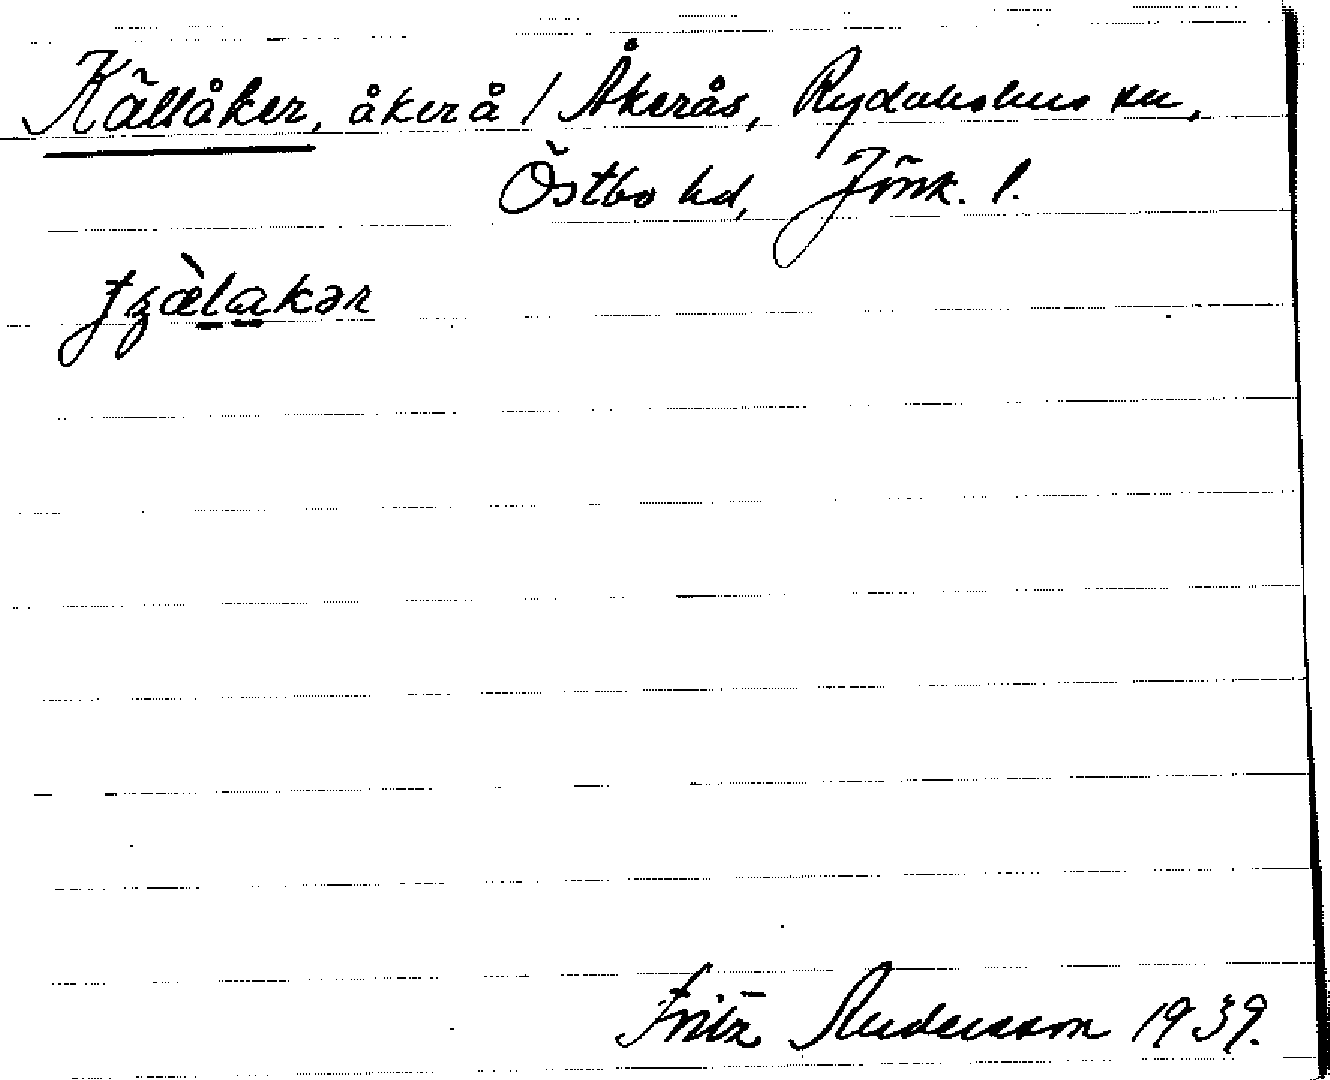 Källåker, åker å / Åkerås, Rydaholms sn,
Östbo hd, Jönk. l.
Fritz Andersson 1939.